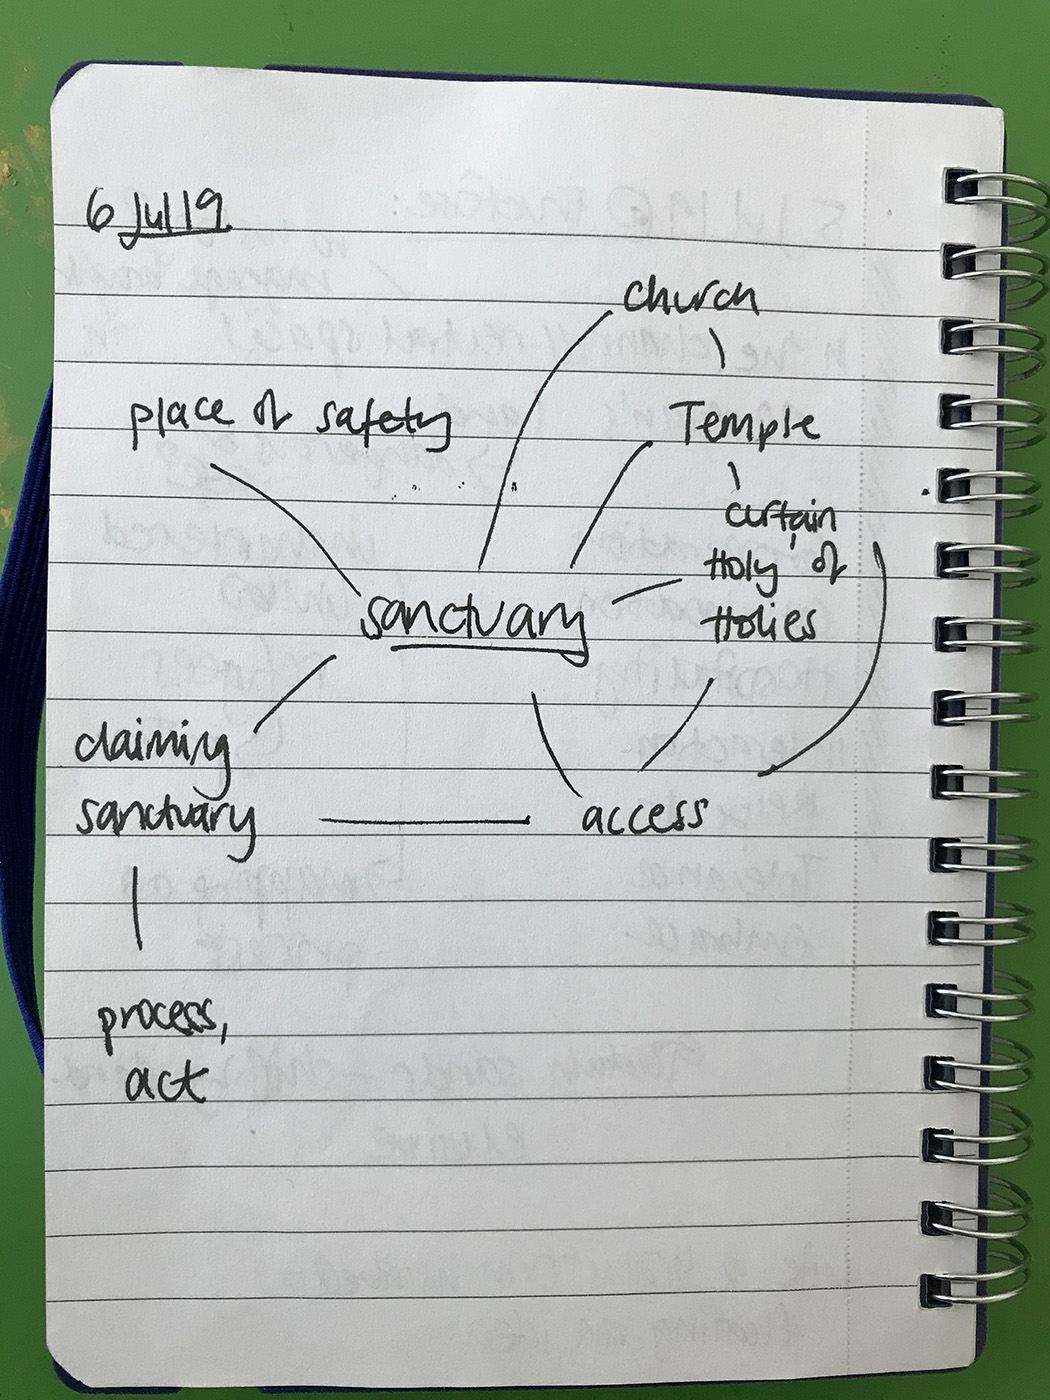 6 Jul 19
church
place of safety
Temple
curtain
Holy of
Holies
sanctuary
claiming
sanctuary
access
process,
act